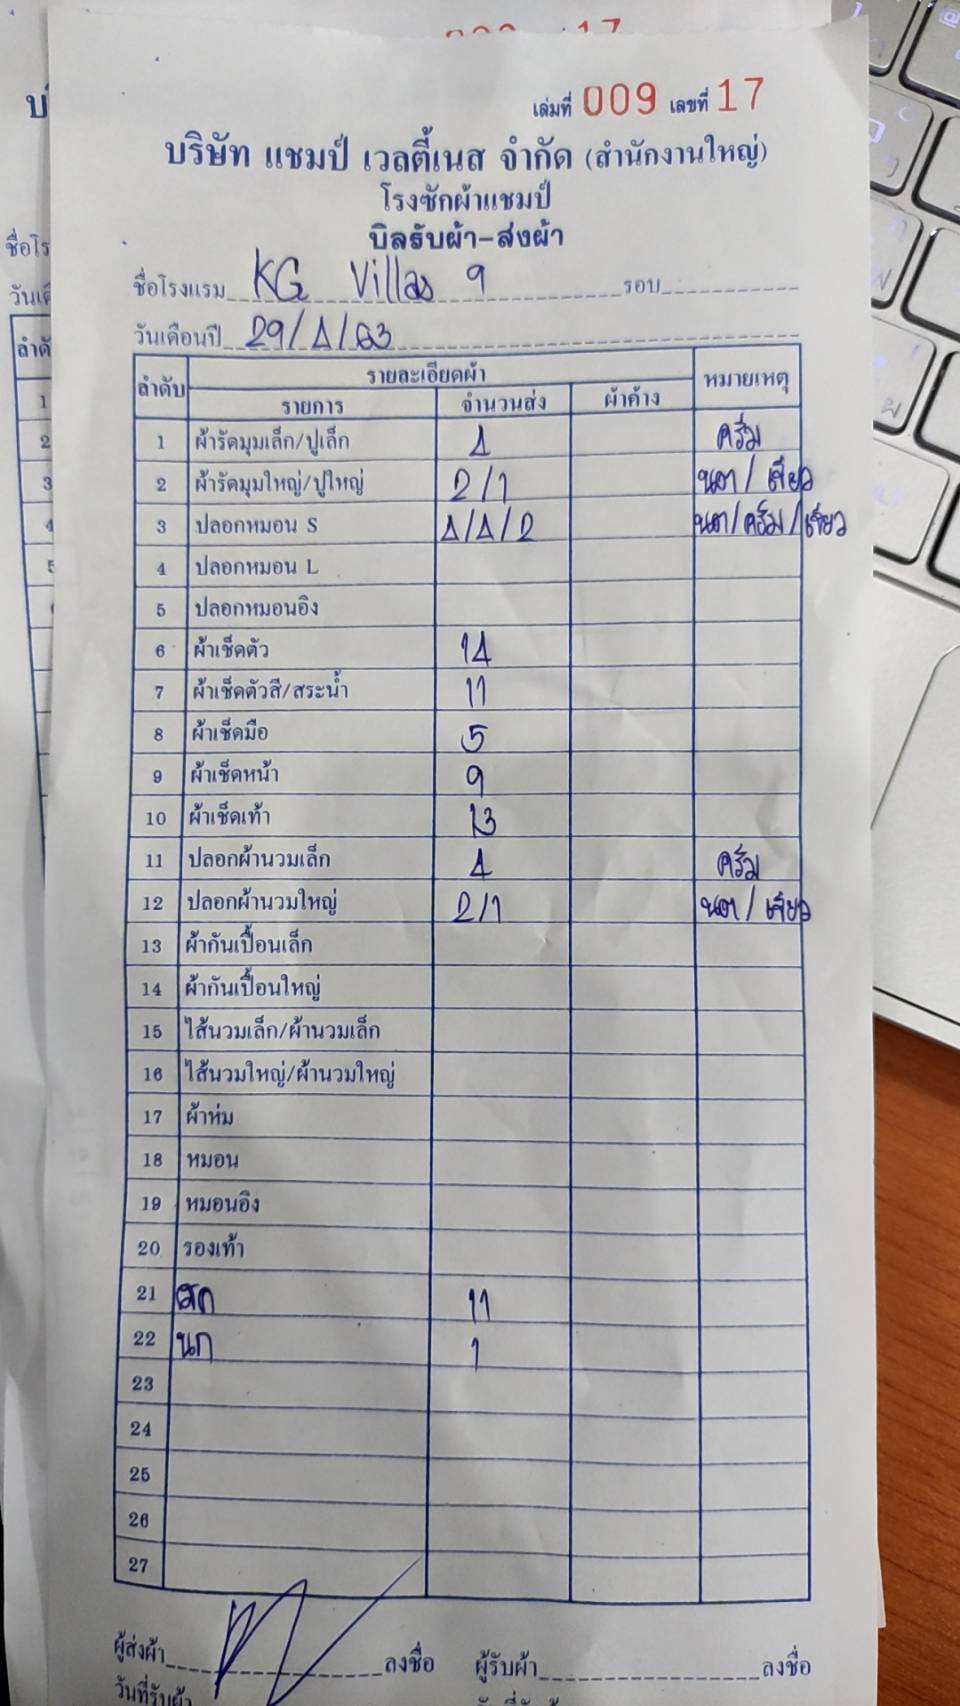 เล่มที่ 009 เลขที่ 17
บริษัท แชมป์ เวลตี้เนส จำกัด (สำนักงานใหญ่)
โรงซักผ้าแชมป์
บิลรับผ้า-ส่งผ้า
ชื่อโรงแรม KG Villas 9 รอบ
วันเดือนปี 29/4/63
ลำดับ รายละเอียดผ้า หมายเหตุ
รายการ จำนวนส่ง ผ้าค้าง
1 ผ้ารัดมุมเล็ก/ปูเล็ก 4 ครีม
2 ผ้ารัดมุมใหญ่/ปูใหญ่ 2/1 นตา / เขียว
3 ปลอกหมอน S 4/4/2 นตา/ครีม/เขียว
4 ปลอกหมอน L
5 ปลอกหมอนอิง
6 ผ้าเช็ดตัว 14
7 ผ้าเช็ดตัวสี/สระน้ำ 11
8 ผ้าเช็ดมือ 5
9 ผ้าเช็ดหน้า 9
10 ผ้าเช็ดเท้า 13
11 ปลอกผ้านวมเล็ก 4 ครีม
12 ปลอกผ้านวมใหญ่ 2/1 นตา / เขียว
13 ผ้ากันเปื้อนเล็ก
14 ผ้ากันเปื้อนใหญ่
15 ไส้นวมเล็ก/ผ้านวมเล็ก
16 ไส้นวมใหญ่/ผ้านวมใหญ่
17 ผ้าห่ม
18 หมอน
19 หมอนอิง
20 รองเท้า
21 11
22 นก 1
23
24
25
26
27
ผู้ส่งผ้า ลงชื่อ ผู้รับผ้า ลงชื่อ
วันที่รับผ้า